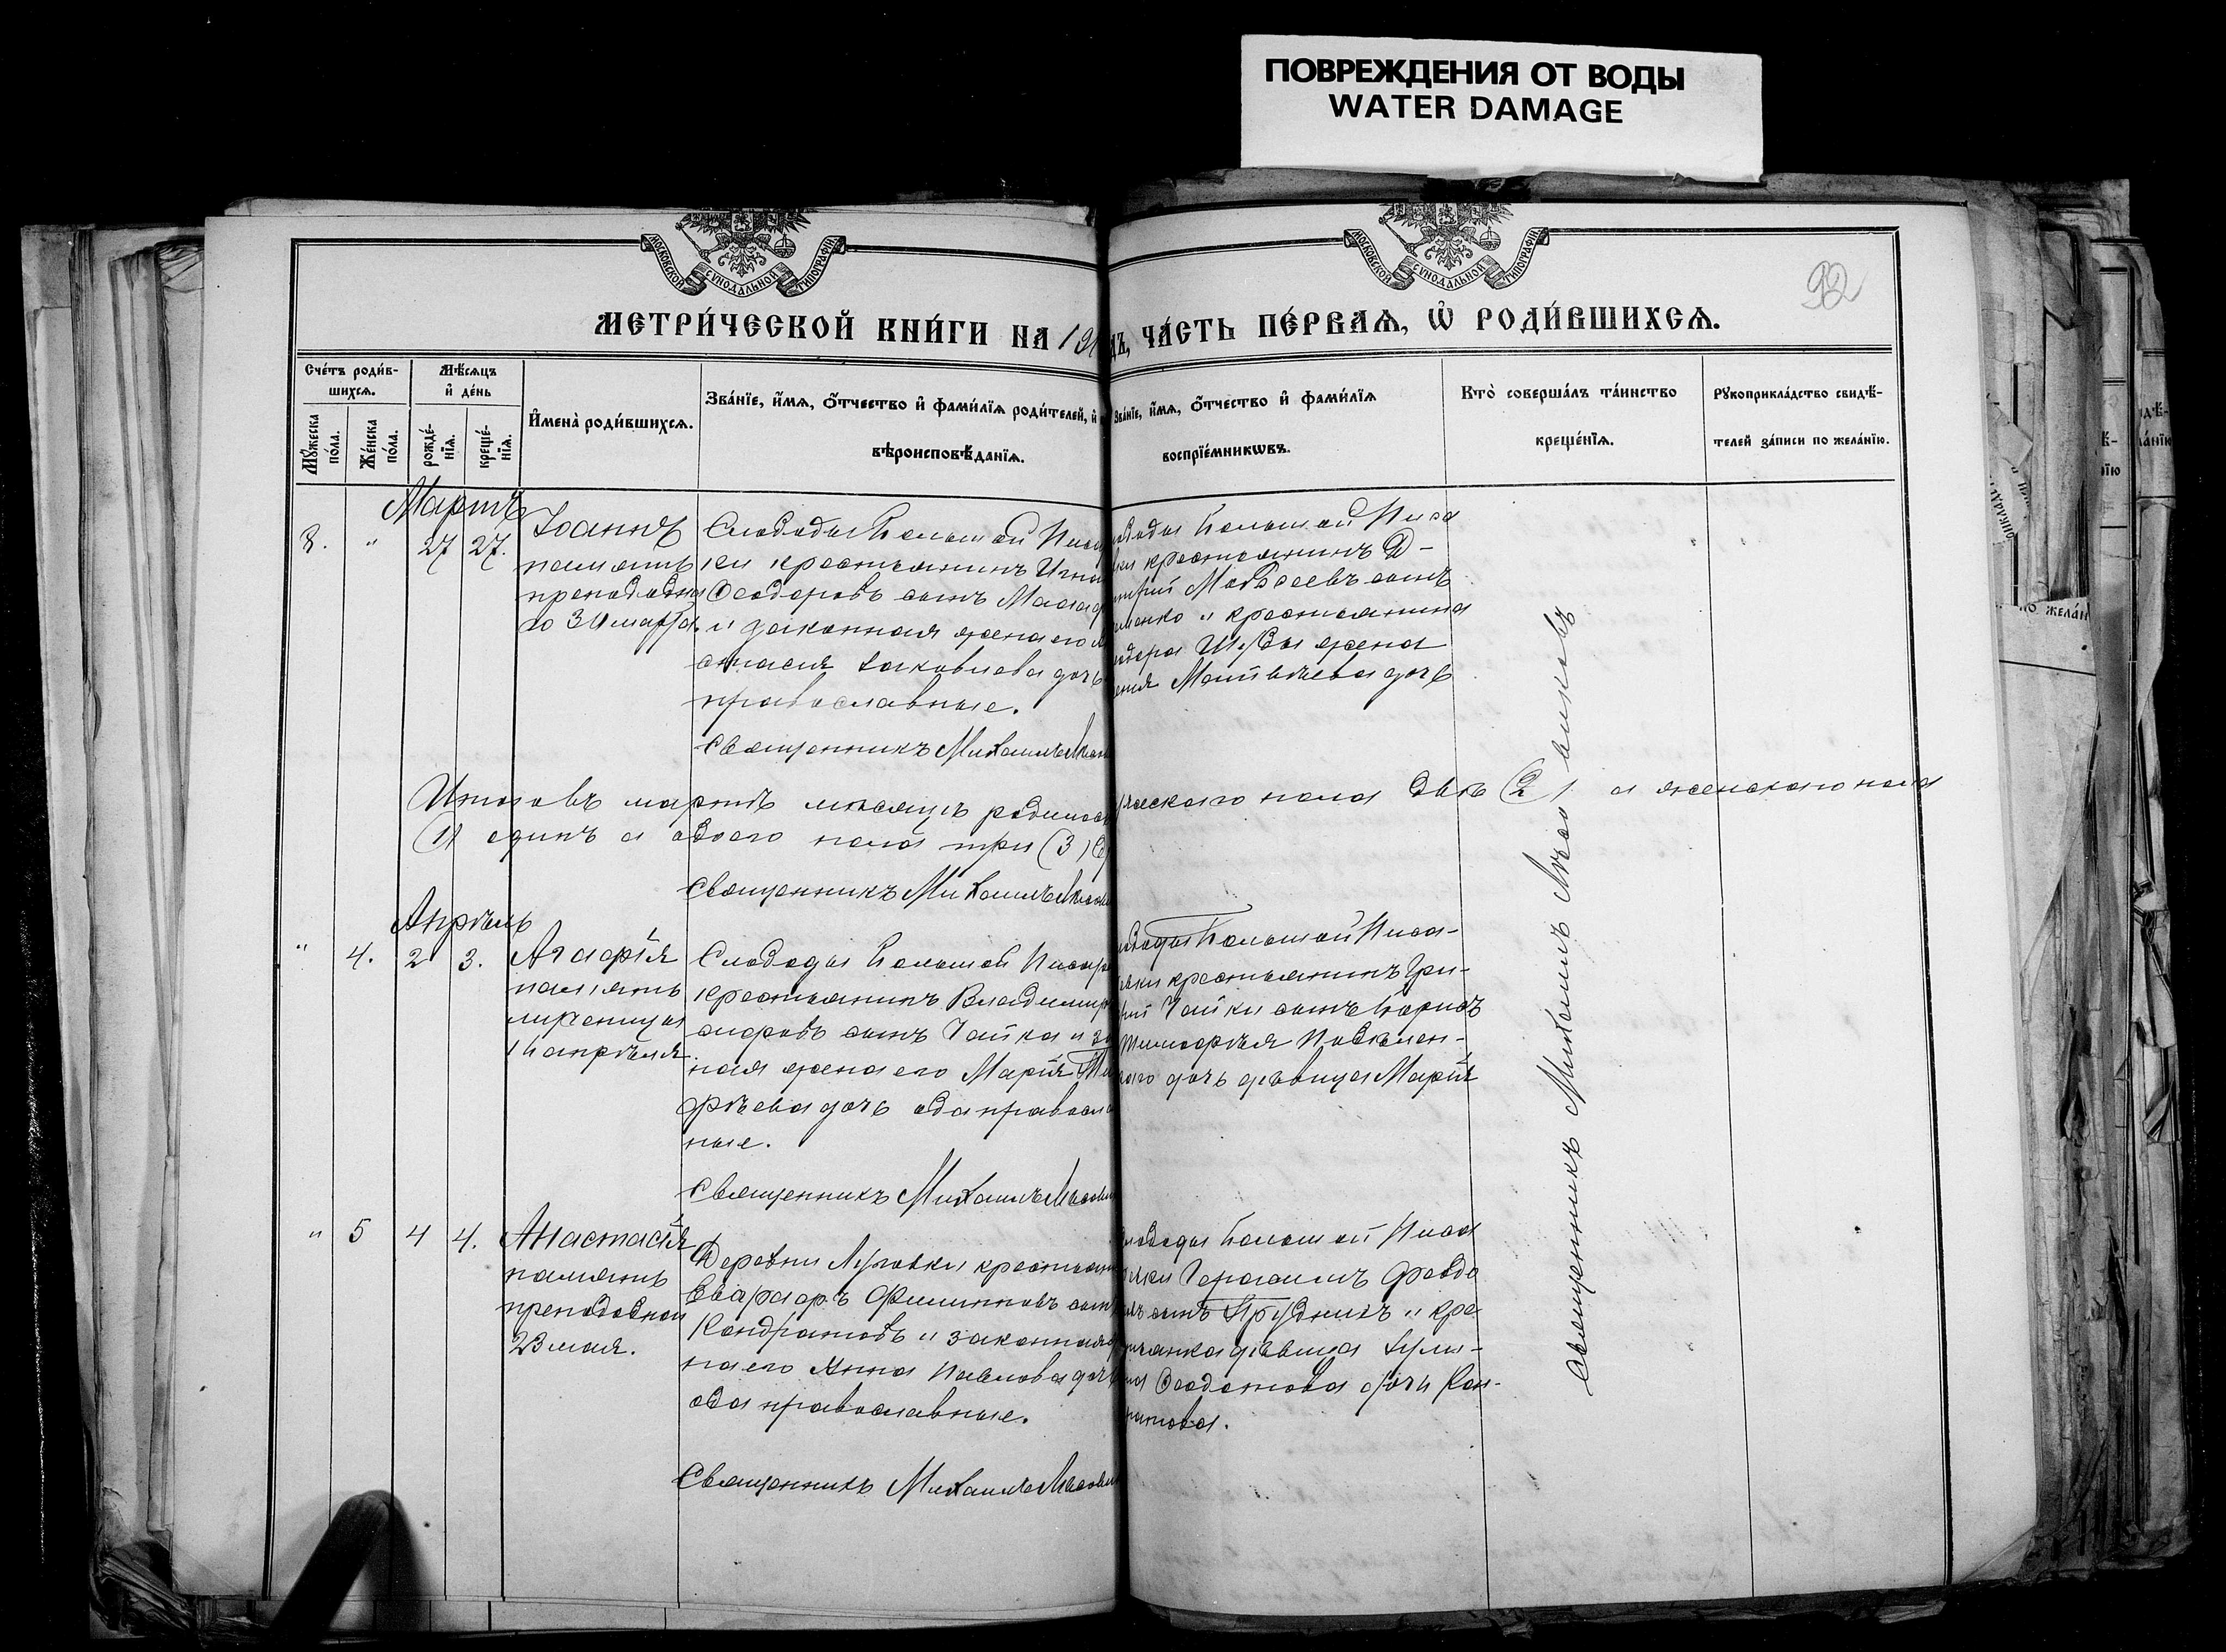 ПОВРЕЖДЕНИЯ ОТ ВОДЫ
WATER DAMAGE
МОСКОВСКОЙ СѴНОДАЛЬНОЙ ТИПОГРАФІИ
МОСКОВСКОЙ СѴНОДАЛЬНОЙ ТИПОГРАФІИ
92
МЕТРИ́ЧЕСКОЙ КНИ́ГИ НА 191
ЧА́СТЬ ПЕ́РВАѦ, Ѡ҆ РОДИ́ВШИХСѦ.
Сче́тъ роди́в-
шихсѧ.
Мꙋжеска по́ла.
Же́нска по́ла.
Мѣ́сѧцъ
и҆ де́нь
рожде́-
нїѧ.
креще́-
нїѧ.
И҆мена̀ роди́вшихсѧ.
Зва́нїе, и҆́мѧ, ѻ҆́тчество и҆ фами́лїѧ роди́телей, и҆
вѣроисповѣ́данїѧ.
Зва́нїе, и҆́мѧ, ѻ҆́тчество и҆ фами́лїѧ
воспрїе́мникѡвъ.
Кто̀ соверша́лъ та́инство
креще́нїѧ.
Рꙋкоприкла́дство свидѣ́-
телей за́писи по жела́нїю.
Мартъ
3. " 27 27.
Іоаннъ
память
преподобна
го 30 марта.
Слободы Большой Писа
ки крестьянинъ Игна
Ѳеодоровъ сынъ
и законная жена его
стасія Іаковлева дочь
православные.
Священникъ Михаилъ
ободы Большой Писа
ки крестьянинъ Д-
митрій Моѵсеевъ сынъ
менко и крестьянина
одора жена
енія Матвѣева дочь
Итого въ мартѣ мѣсяцѣ родилось
жескаго пола два (2) а женскаго пола
(1) одинъ а обоего пола три (3)
Священникъ Михаилъ
Апрѣль
" 4. 2 3.
Агафія
память
мученицы
16 апрѣля.
Слободы Большой Писар
крестьянинъ Владимиръ
сѣровъ сынъ Чайка и за
ная жена его Марія Ти
фѣева дочь оба правосла
ные.
Священникъ Михаилъ
ободы Большой Писа-
ки крестьянинъ Гри-
рій Чайки сынъ Борисъ
Тимофѣя
каго дочь дѣвица Марія
" 5 4 4.
Анастасія
память
преподобной
23 мая.
Деревни Луговки крестьян
Филипповъ сынъ
Кондратовъ и законная
на его Анна Павлова дочь
оба православные.
Священникъ Михаилъ
лободы Большой Писа
ки Герасимъ Ѳеодо
въ сынъ Прудникъ и кре
стьянка дѣвица Іули-
на Ѳеодотова дочь Кон-
ратова.
Священникъ Михаилъ